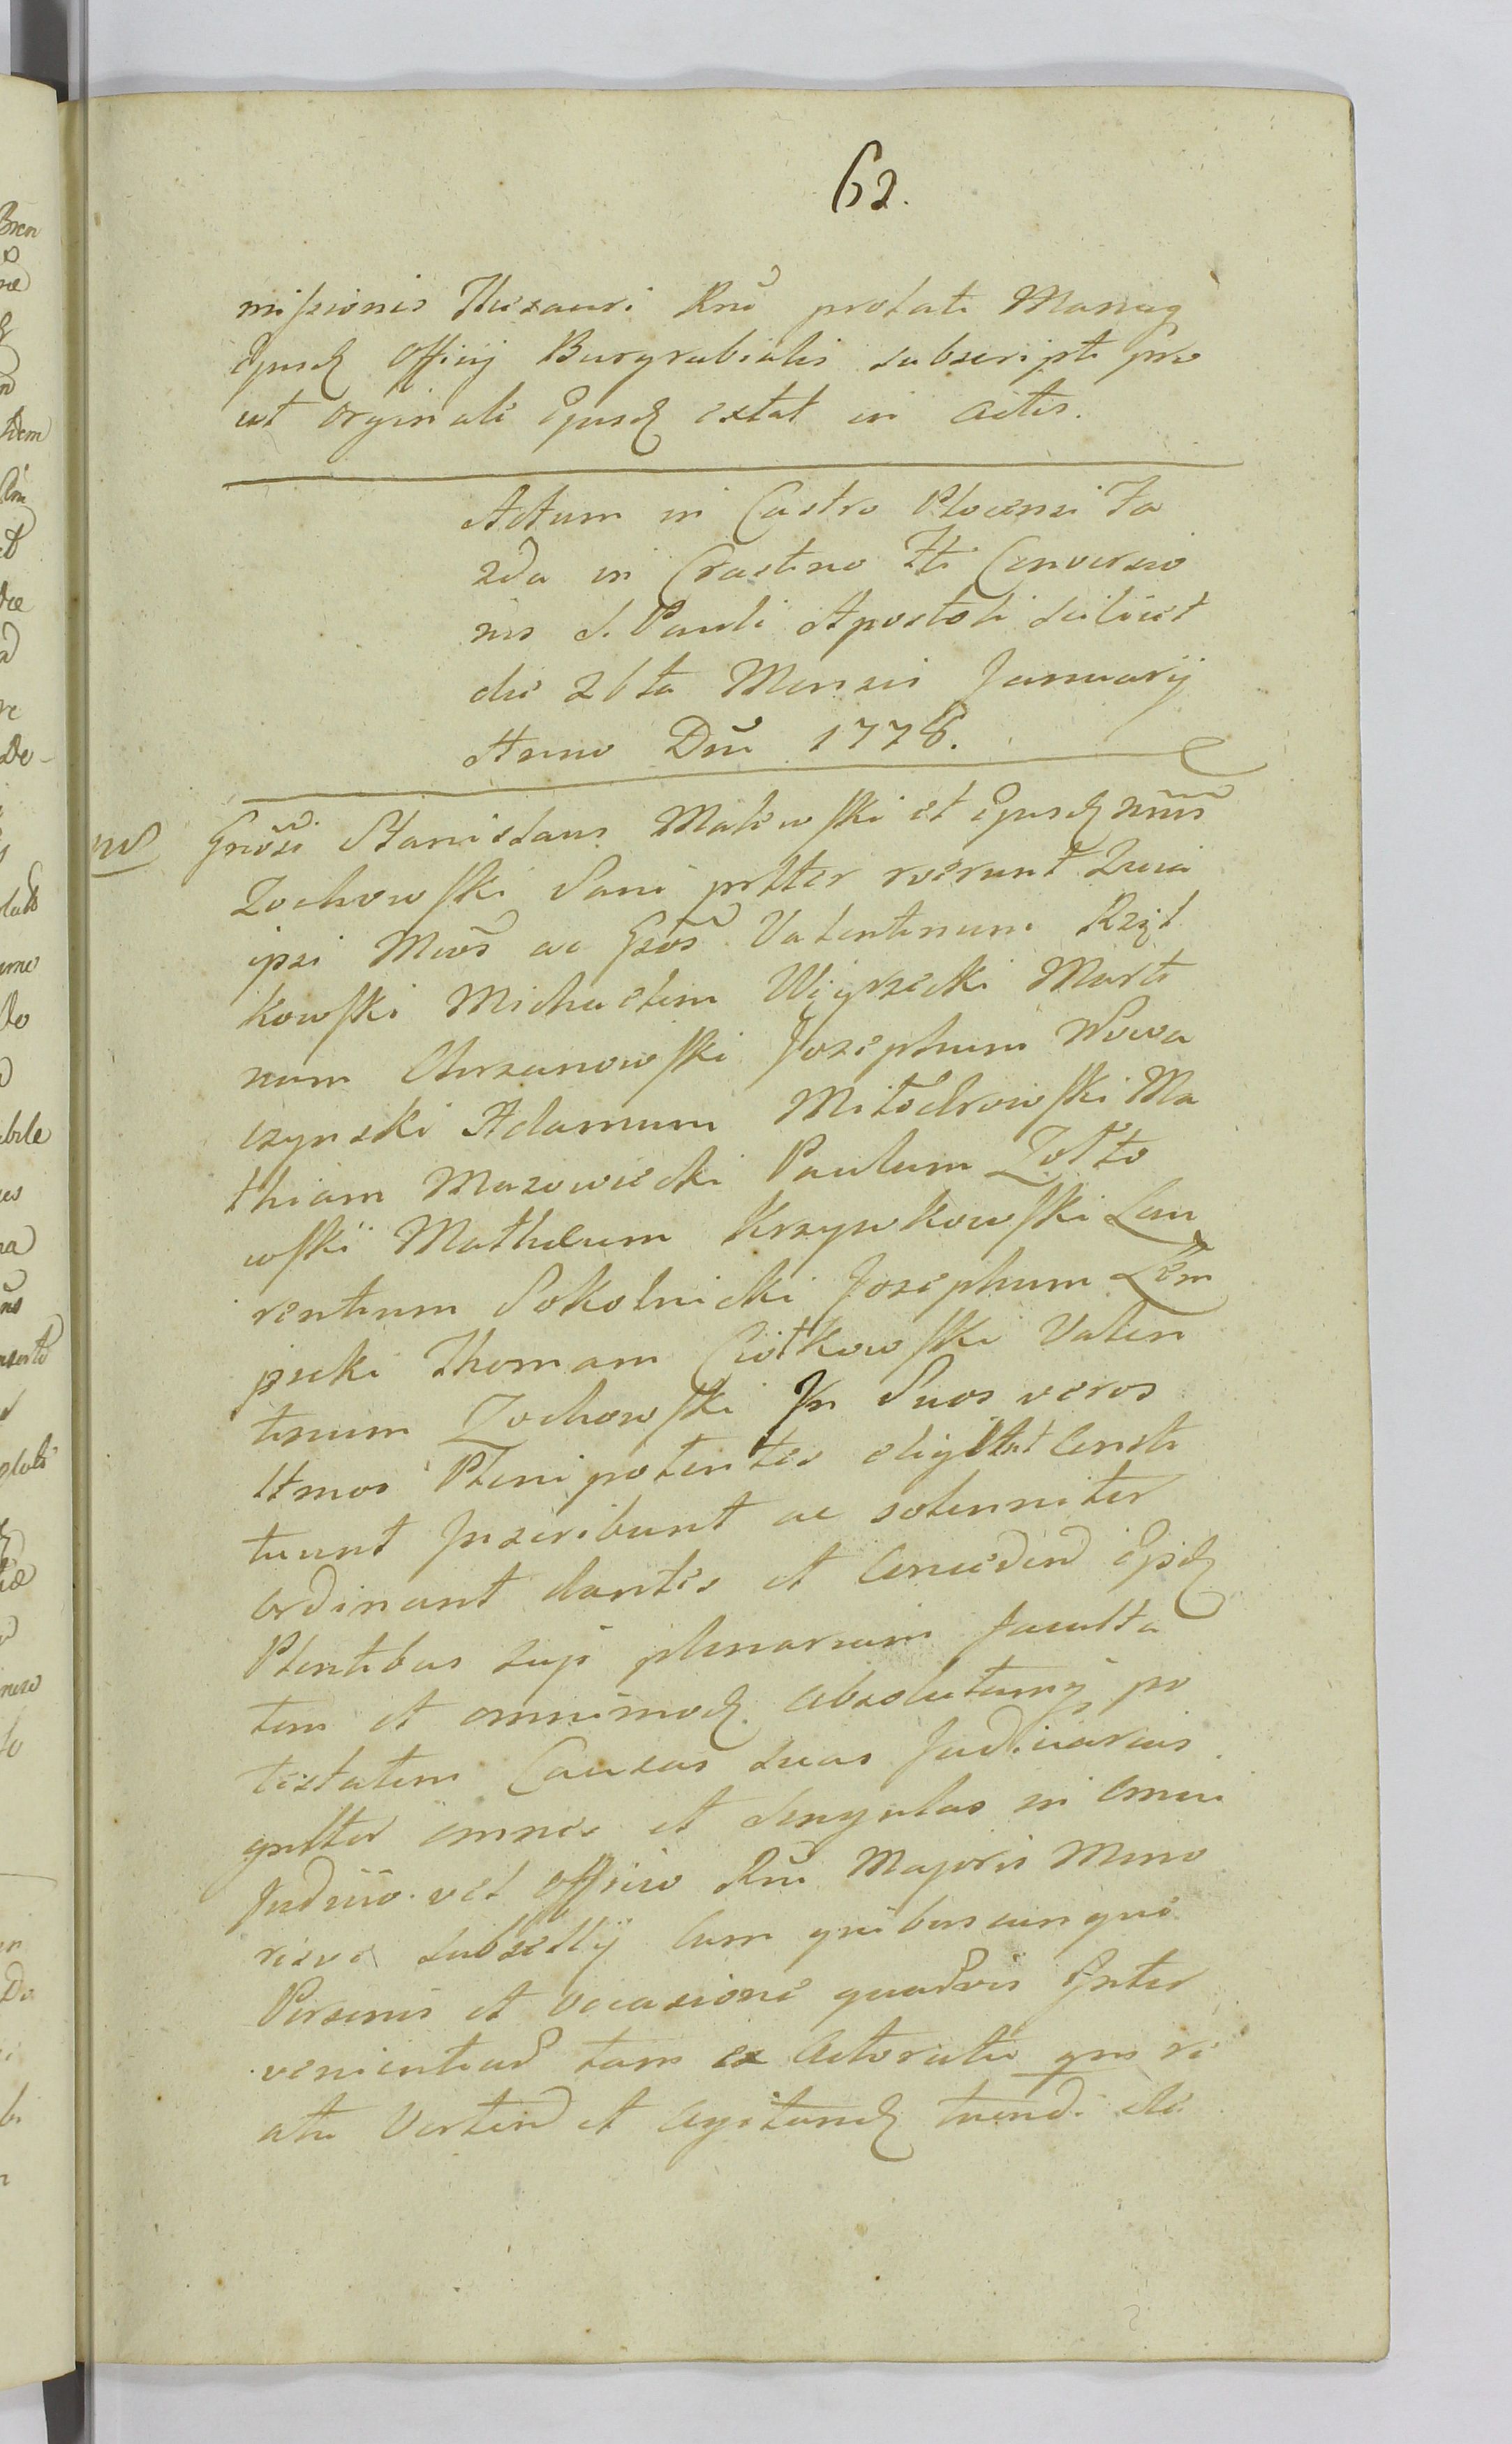 62.
missionis Thesauri Rni prolati Manuq
Ejusd Officij Burgrabialis subscripti pro
ut orginali Ejusd extat in actis.
Actum in Castro Plocensi Fa
2da in Crastino Fti Conversio
nis S. Pauli Apostoli scilicet
die 26ta Mensis Januarij
Anno Dni 1778.
Gnosi Stanislaus Malewski et Ejusd
Zochowski Sani pstter roerunt Quia
ipsi Mcos ac Gsos Valentinum Rzyt
kowski Michaelem Wigrzecki Marti
num Chrzanowski Josephum Nowa
czynski Adamum Miłodrowski Ma
thiam Mazowiecki Paulum Żołto
wski Mathæum Krzywkowski Lau
rentium Sokolnicki Josephum Lem
picki Thomam Ciołkowski Valen
tinum Zochowski In Suos veros
ltmos Plenipotentes eligunt Consti
tuunt Inscribunt ac solenniter
ordinant dantes et Concedend Ipsd
Plentibus suis plenariam faculta
tem et omnimod absolutamq po
testatem Causas suas Judiciarias
gnltter omnes et singulas in omni
Judicio vel Officio Rni Majoris Mino
risve subsellij Cum quibuscunque
Personis et occasione quarvis Inter
venientiad tam ex Actoratu qm re
atu Vertend et Agitand tuendi